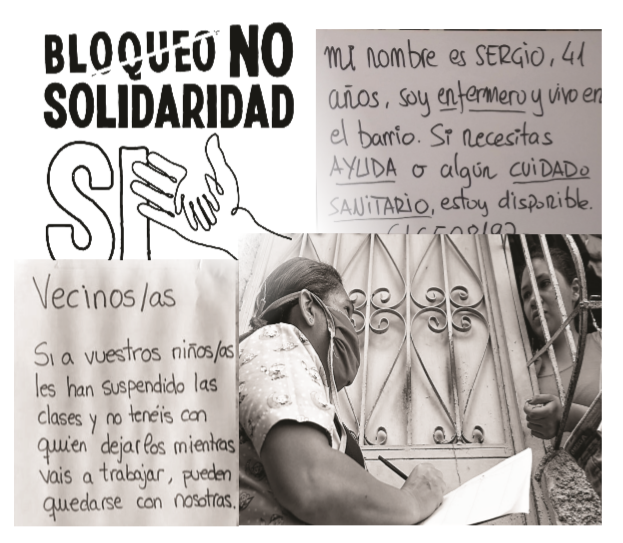 BLOQUEO NO
SOLIDARIDAD
SÍ
mi nombre es SERGIO, 41
años, soy enfermero y vivo en
el barrio. Si necesitas
AYUDA o algún CUIDADO
SANITARIO, estoy disponible.
Vecinos/as
Si a vuestros niños/as
les han suspendido las
clases y no tenéis con
quien dejarlos mientras
vais a trabajar, pueden
quedarse con nosotras.